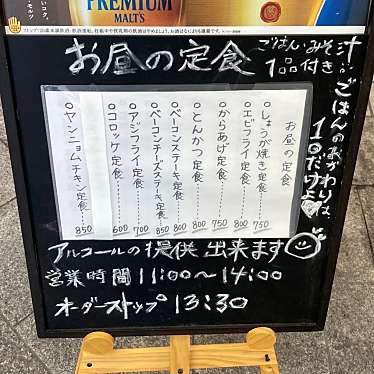 PREMIUM
MALT'S
お昼の定食
ごはん・みそ汁
1品付き
ごはんのおかわりは
1回だけよ♥
お昼の定食
○しょうが焼き定食……750
○エビフライ定食……800
○からあげ定食……750
○とんかつ定食……800
○ベーコンステーキ定食……800
○ベーコンチーズステーキ定食…850
○アジフライ定食……700
○コロッケ定食……600
○ヤンニョムチキン定食……850
アルコールの提供出来ます
営業時間 11:00〜14:00
オーダーストップ 13:30